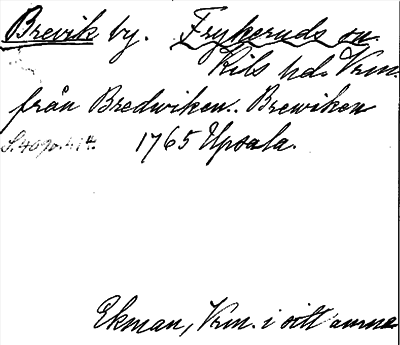 Brevik by. Frykeruds sn
Kils hd. Vrm.
från Bredwiken. Brewiken
1765 Upsala.
Ekman, Vrm. i sitt ämne